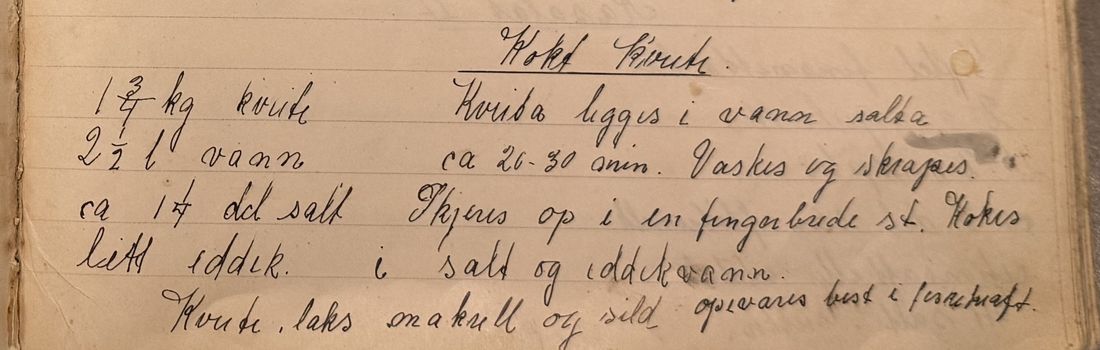 Kokt Kveite.
1 3/4 kg kveite Kveita legges i vann salta
2 1/2 l vann ca 20-30 min. Vaskes og skrapes.
ca 1/4 dcl salt Skjeres op i en fingerbrede st. Kokes
litt eddik. i salt og eddikvann.
Kveite, laks makrell og sild opevares best i fiskekraft.